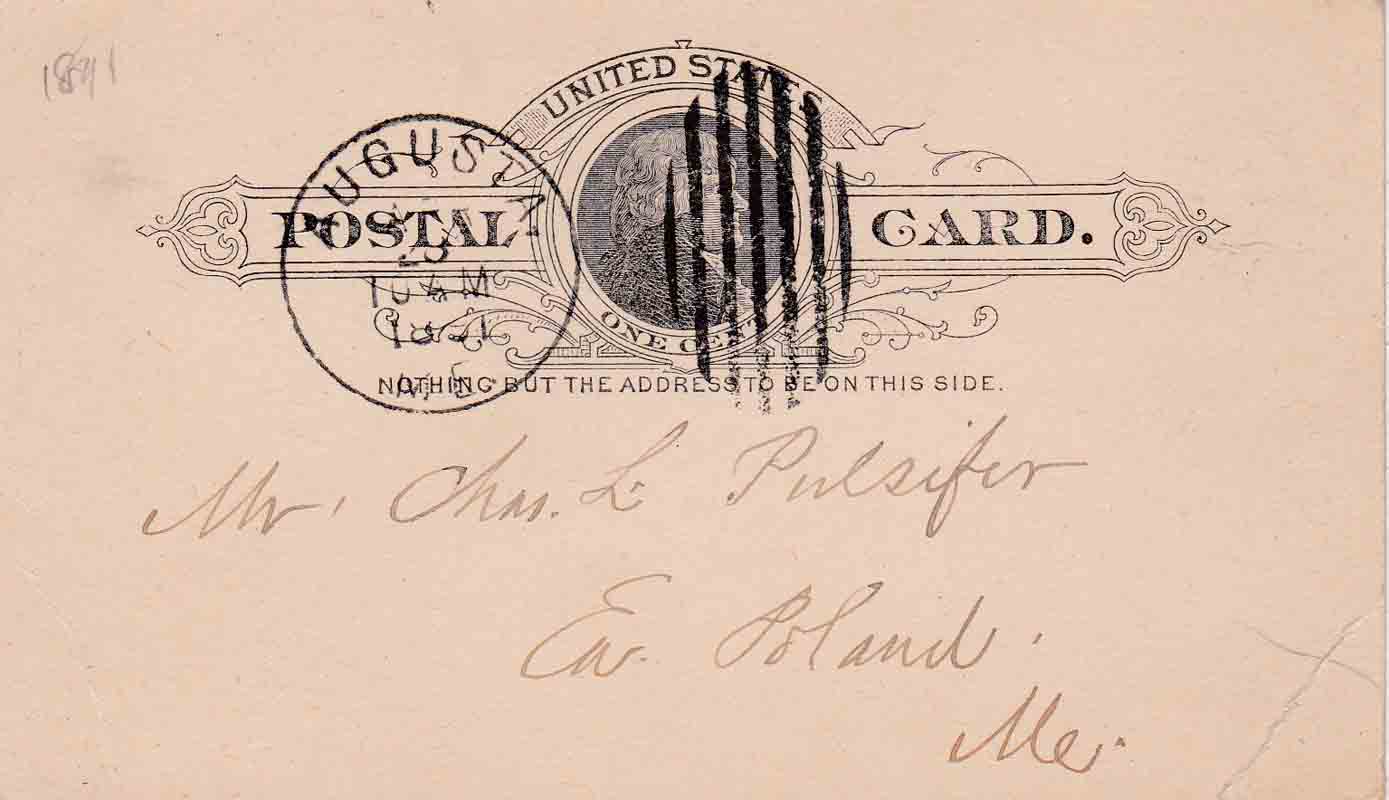 1891
UNITED STATES
AUGUSTA
POSTAL CARD.
10 AM
1891
ME.
ONE CENT
NOTHING BUT THE ADDRESS TO BE ON THIS SIDE.
Mr. Chas. L. Pulsifer
Ea. Poland.
Me.